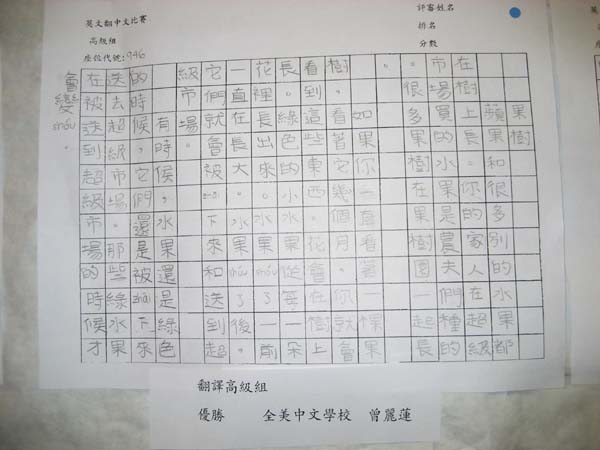 英文翻中文比賽
高級組
座位代號:946
評審姓名
排名
分數
果樹
蘋果和很多別的水果都
在樹上長。你的家人在超級
市場買的水果是農夫們種的
。很多果樹在果樹園一起長
。
如果你一直看著一棵果
樹。看著它幾個月。你就會
看到這些東西。花會在樹上
長。綠色的小水果從每一朵
花裡長出來。水果shóu了一前
一直在長大。水果shóu了後。
它們就會被zhāi下來和送到超
級市場。
有時候，水果還是綠色
的時候，它們還是被zhāi下來
送去超級市場。那些綠水果
在被送到超級市場的時候才
會變shóu。
翻譯高級組
優勝 全美中文學校 曾麗蓮